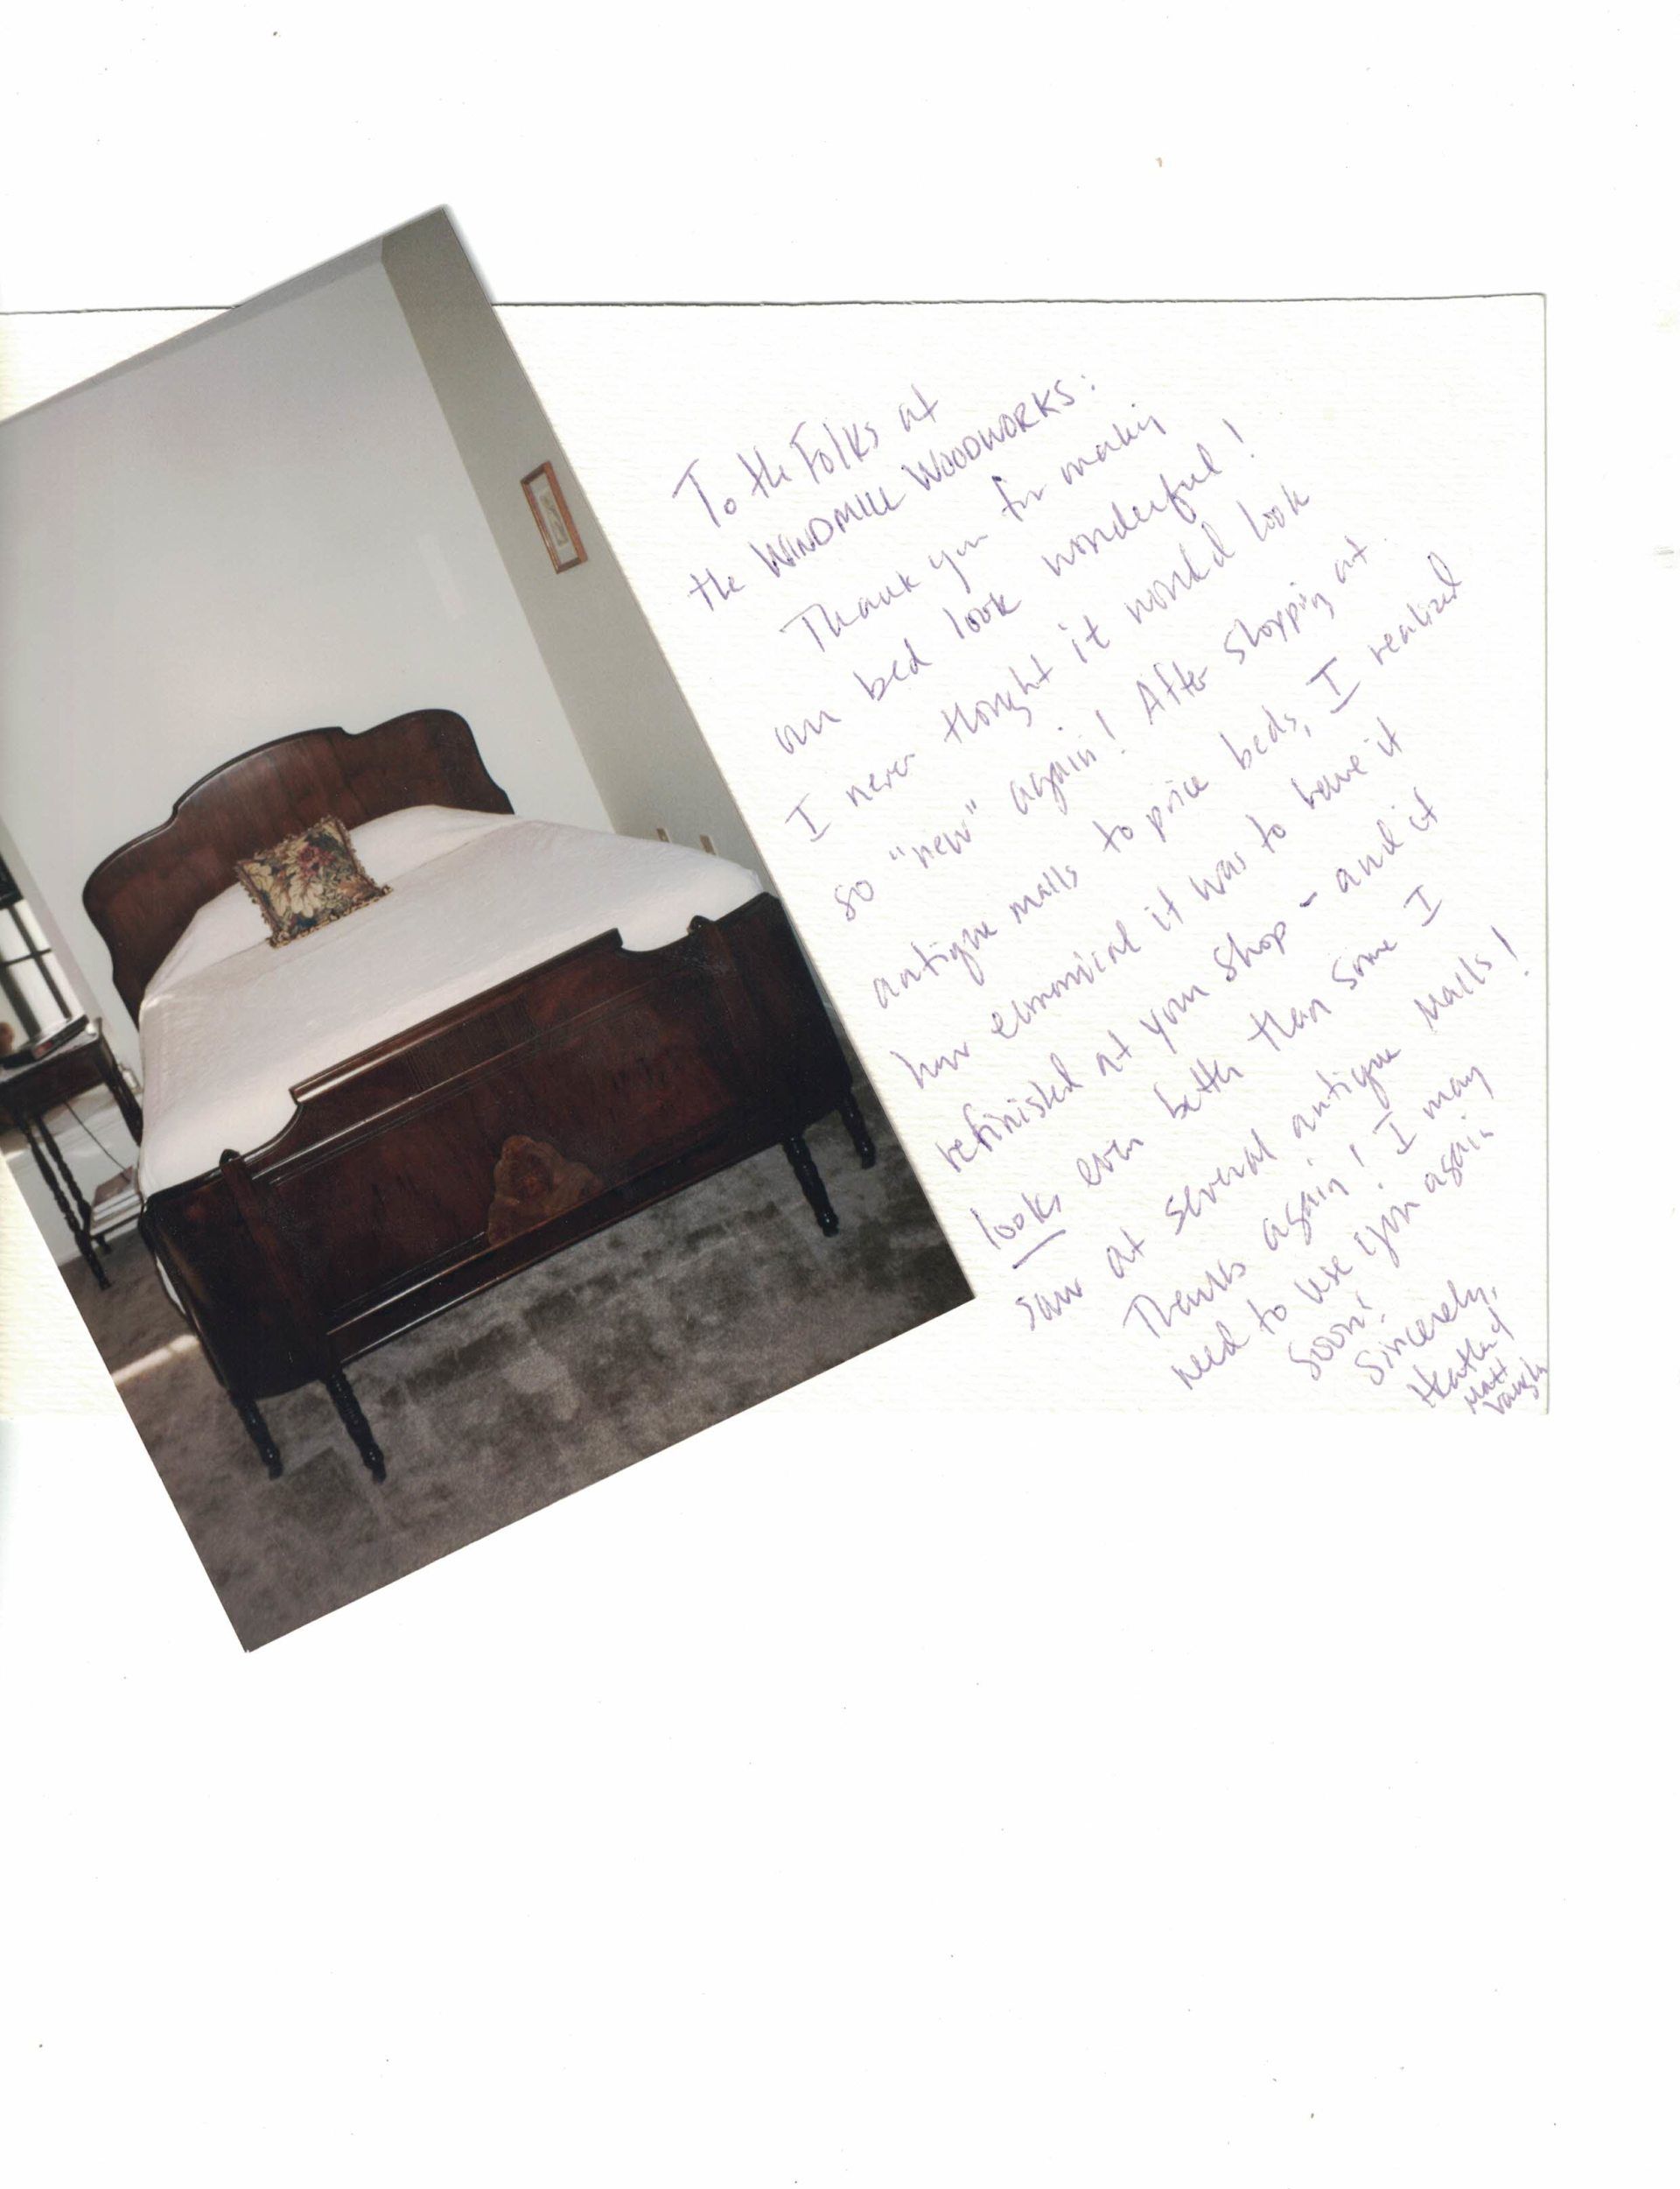 To the Folks at
the WINDMILL WOODWORKS:
Thank you for making
our bed look wonderful!
I never thought it would look
so "new" again! After shopping at
antique malls to price beds, I realized
how economical it was to have it
refinished at your shop - and it
looks even better than some I
saw at several antique malls!
Thanks again! I may
need to use you again
soon!
Sincerely,
Heather &
Matt
Vaughn